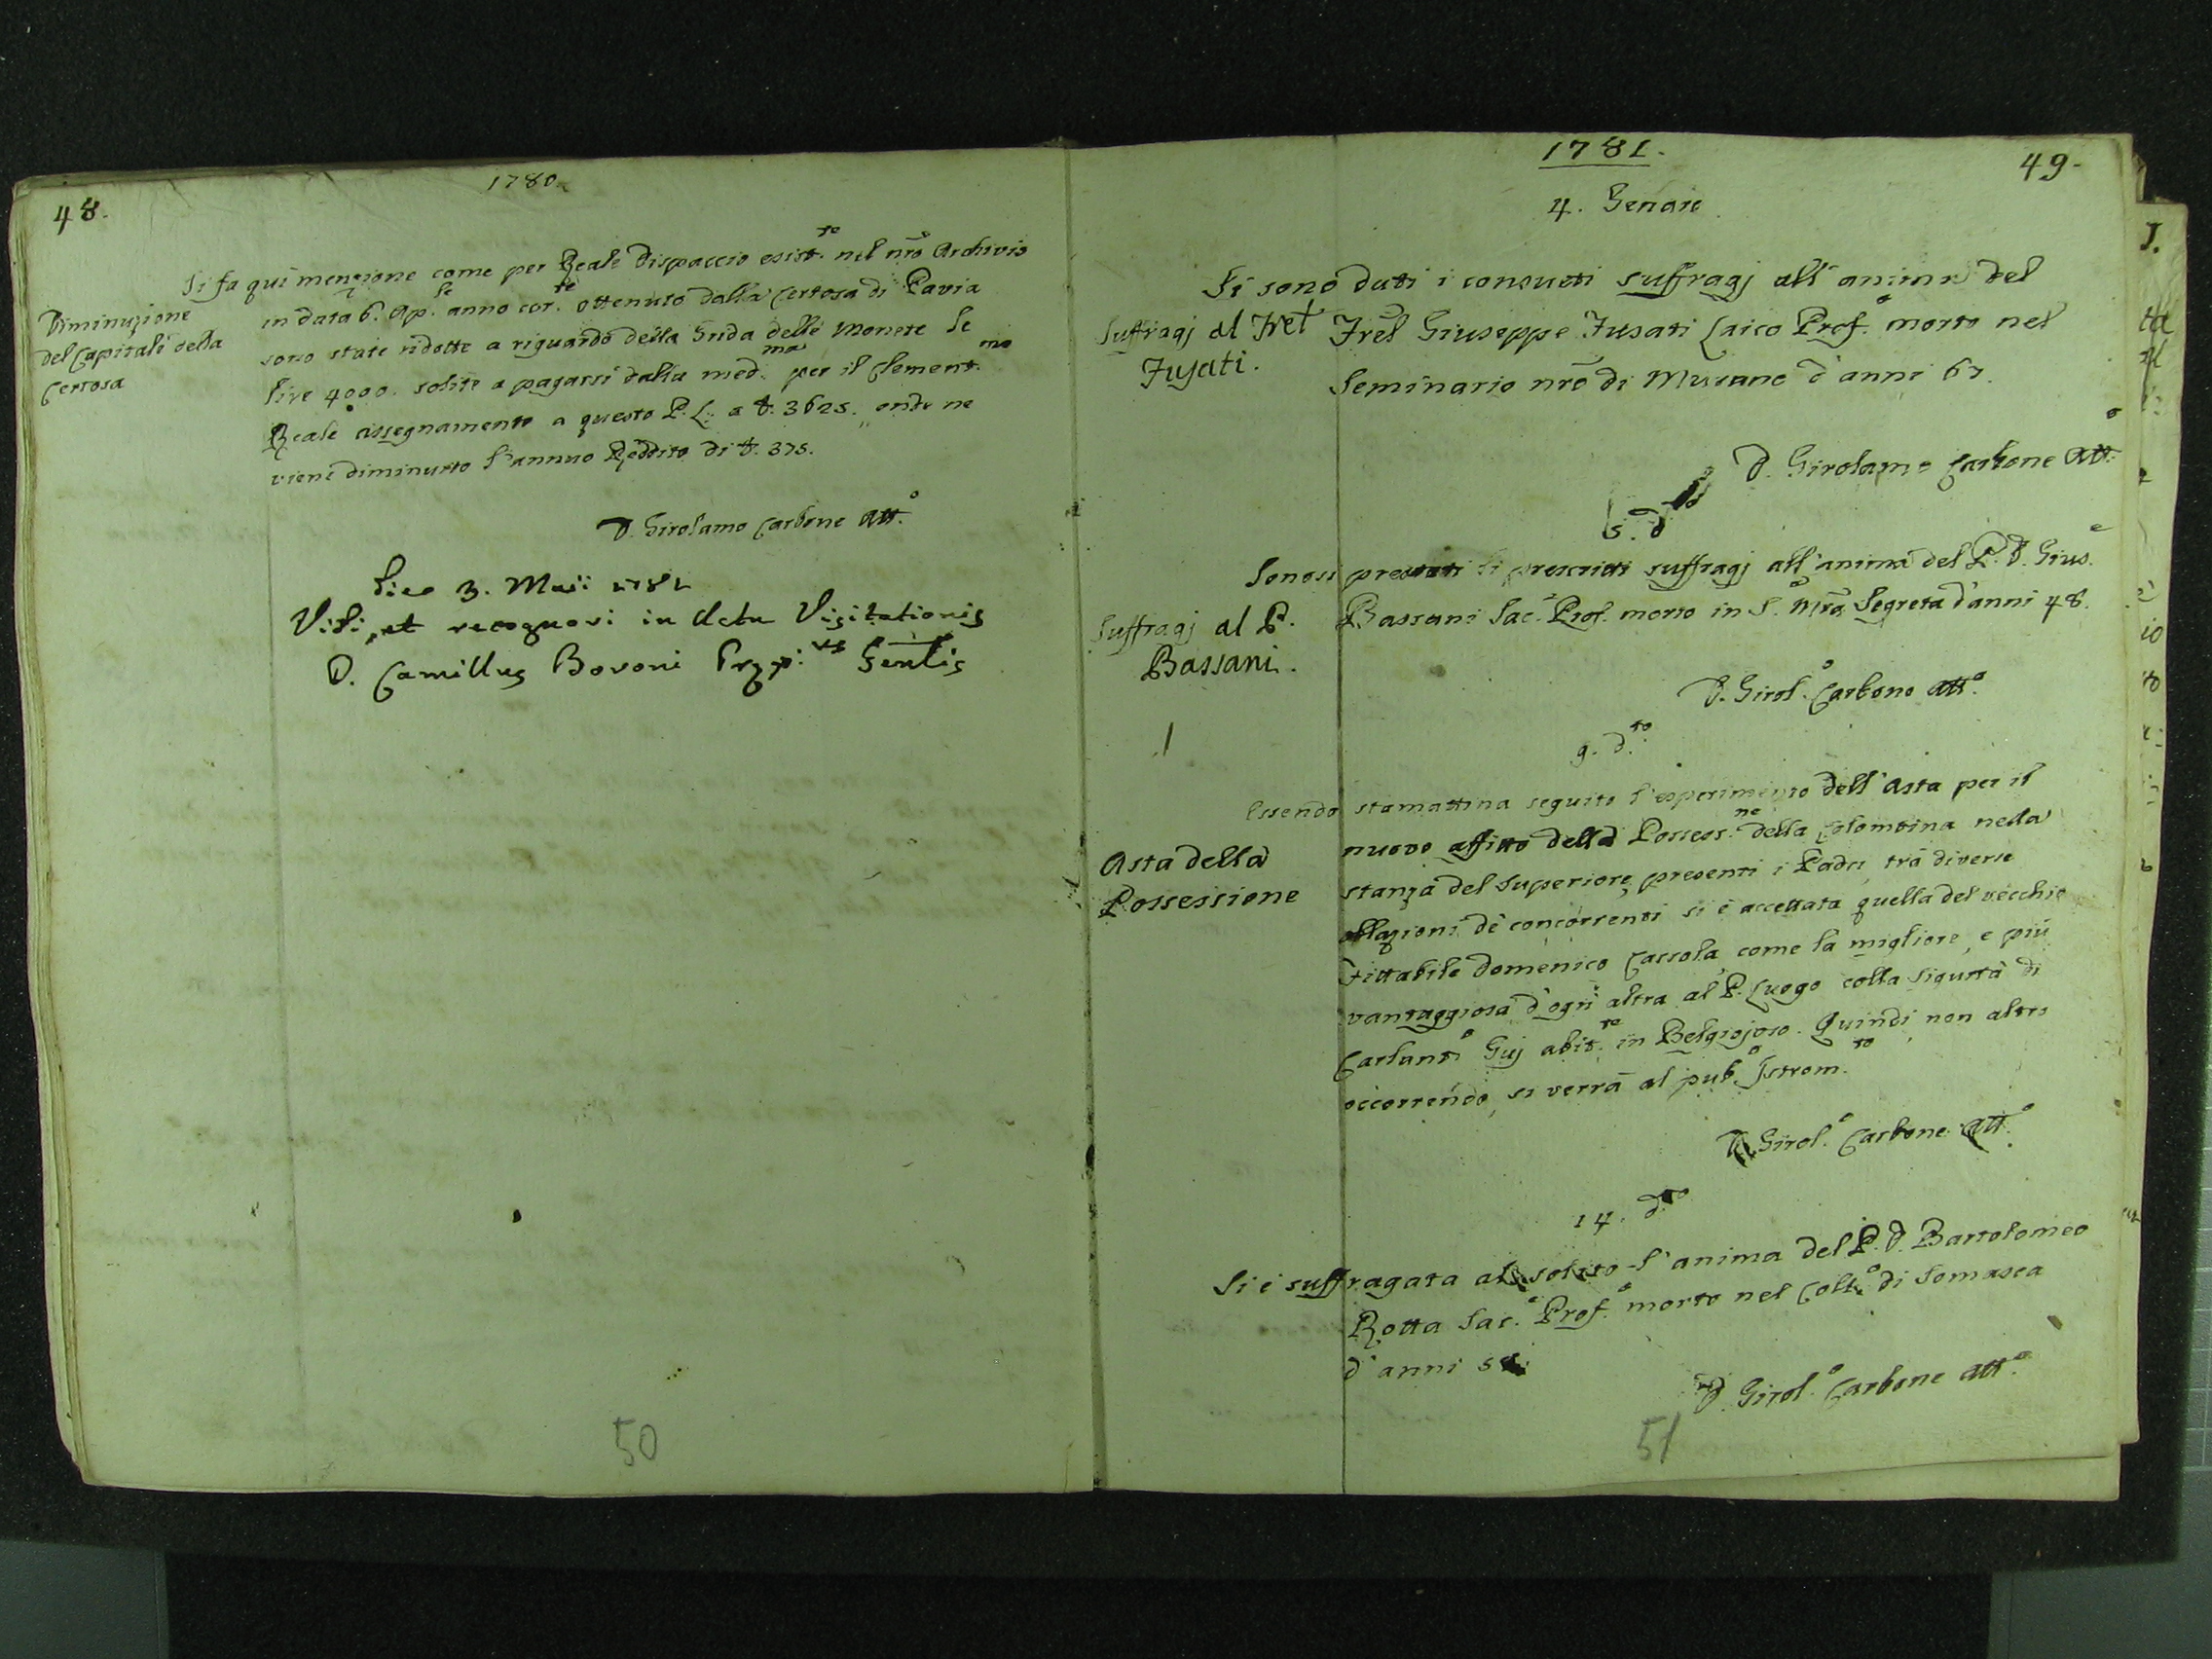 48.
1780
Si fa qui menzione come per Reale dispaccio esist.te nel nrõ Archivio
Diminuzione
del Capitali della
Certosa
in data 6. Ap.le anno cor.te ottenuto dalla Certosa di Pavia
sono state ridotte a riguardo della Grida delle Monete le
lire 4000. solite a pagarsi dalla med.ma per il Clement.mo
Reale assegnamento a questo P. L. a £. 3625., onde ne
viene diminuito l'annuo Reddito di £. 375.
D. Girolamo Carbone Att.o
Die 3. Maii 1781
Vidi, et recognovi in Actu Visitationis
D. Camillus Bovoni Prep.tus Gen̄lis
50
1781.
49.
4. Genaro
Si sono dati i consueti suffragj all'anima del
Suffragj al Frel̃
Fusati.
Frel̃ Giuseppe Fusati Laico Prof.o morto nel
Seminario nrõ di Murano d'anni 67.
D. Girolamo Carbone Att.o
5. d.to
Sonosi prestati li prescritti suffragj all'anima del P. D. Gius.e
Suffragj al P.
Bassani.
Bassani Sac.e Prof.o morto in S. Mrã Segreta d'anni 48.
D. Girol.o Carbone Att.o
9. d.to
Essendo stamattina seguito l'esperimento dell'Asta per il
Asta della
Possessione
nuovo affitto della Possess.ne della Colombina nella
stanza del Superiore, presenti i Padri, trà diverse
oblazioni de' concorrenti si è accettata quella del vecchio
Fittabile Domenico Cassola, come la migliore, e più
vantaggiosa d'ogni altra al P. Luogo colla sigurtà di
Carlant.o Guj abit.te in Belgiojoso. Quindi, non altro
occorrendo, si verrà al pub.o Istrom.to
D. Girol.o Carbone Att.o
14. d.to
Si è suffragata al solito l'anima del P. D. Bartolomeo
Rotta Sac.e Prof.o morto nel Coll.o di Somasca
d'anni
D. Girol.o Carbone Att.o
51